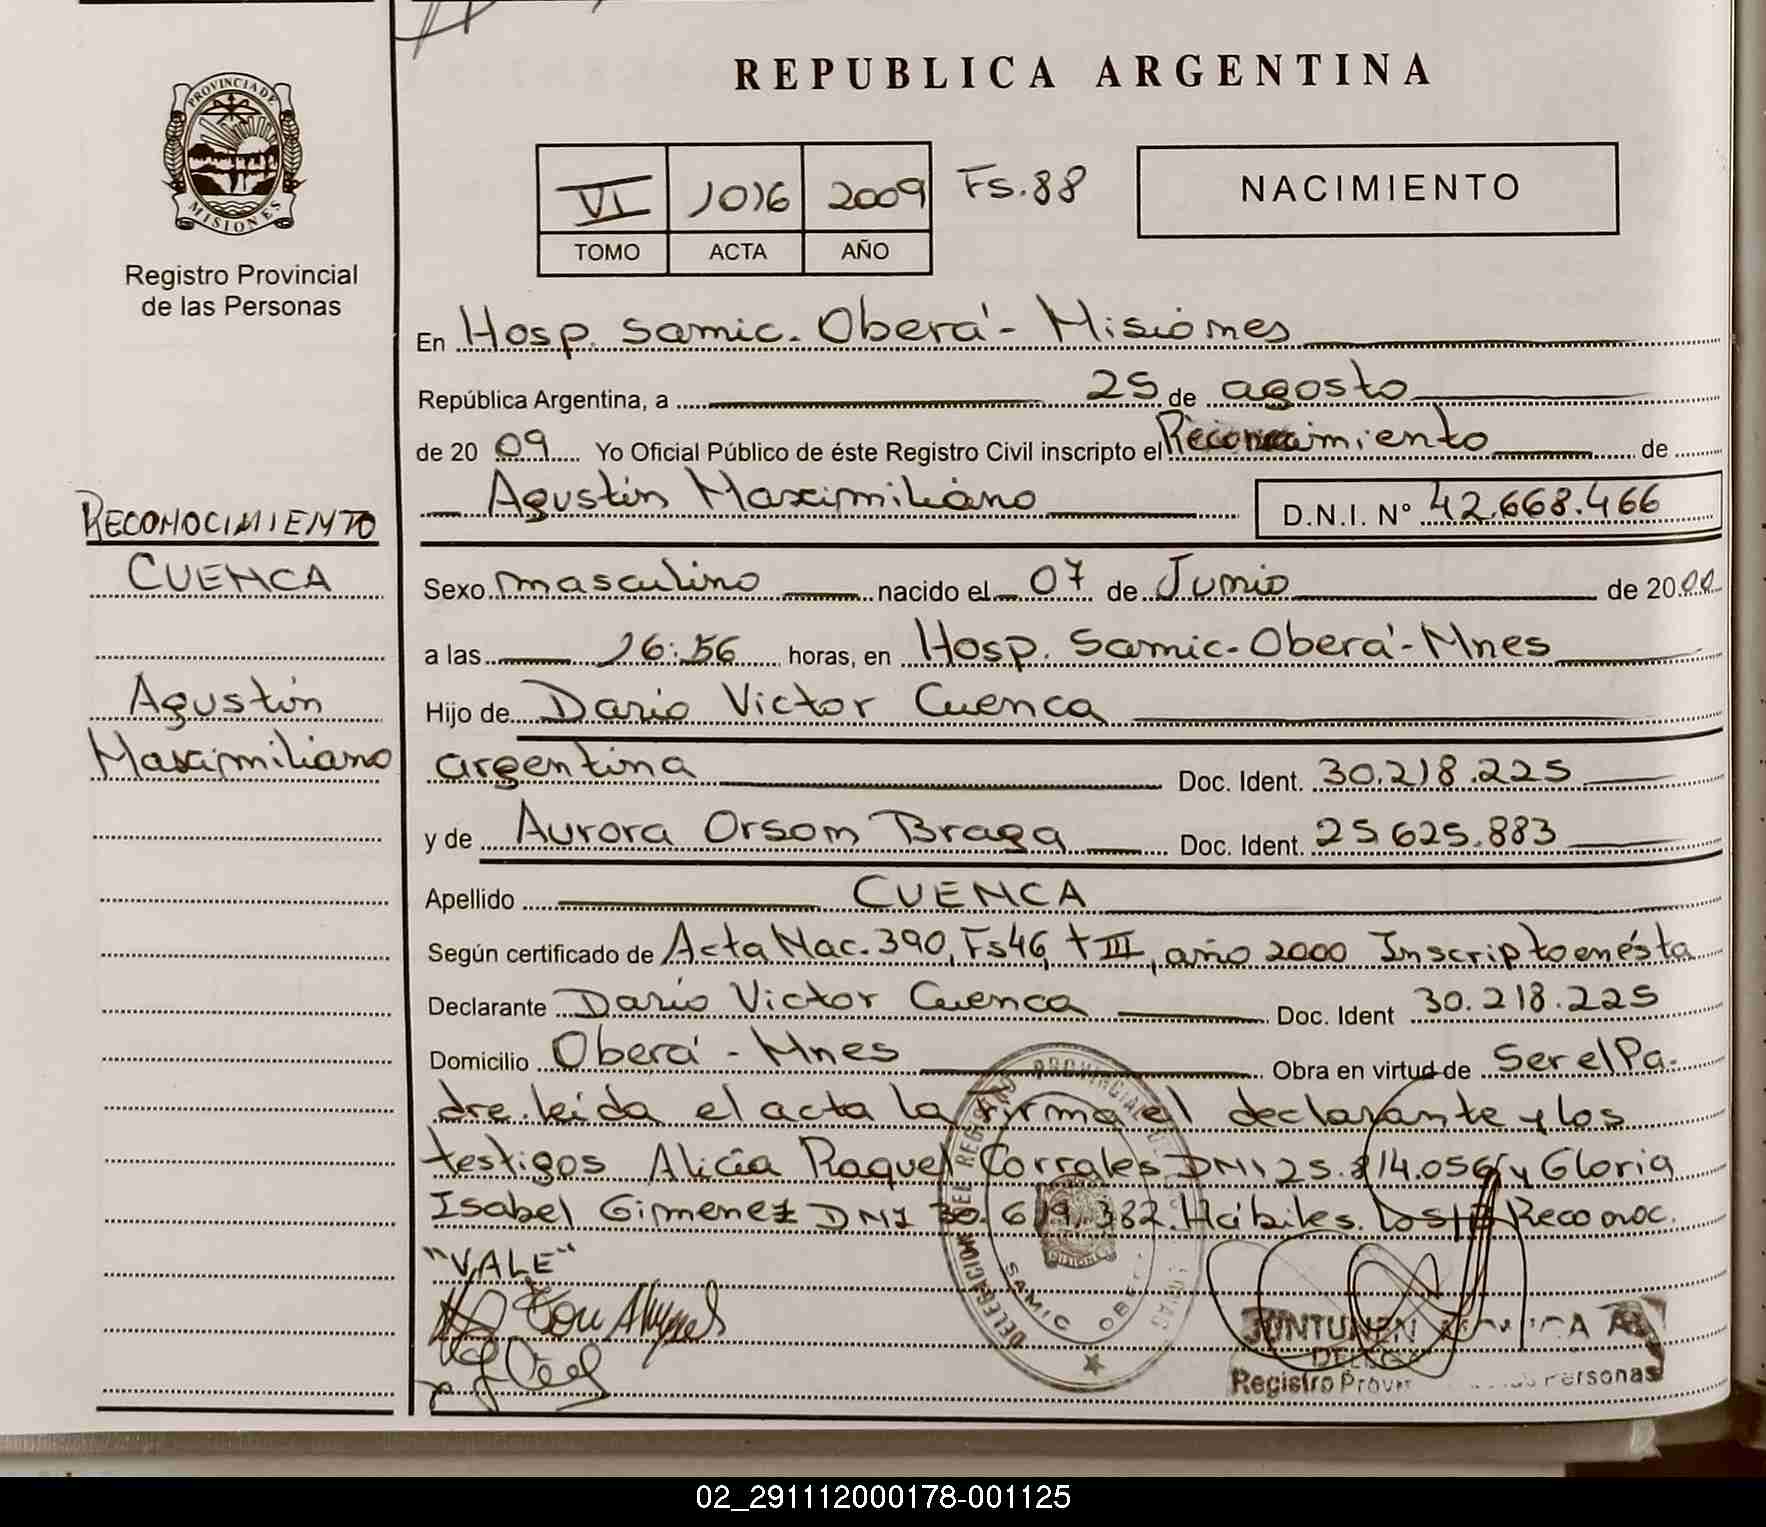 REPUBLICA ARGENTINA
PROVINCIA DE
MISIONES
Registro Provincial
de las Personas
VI 1016 2009 Fs.88
TOMO ACTA AÑO
NACIMIENTO
En Hosp. Samic. Oberá - Misiones
República Argentina, a 25 de agosto
de 2009 Yo Oficial Público de éste Registro Civil inscripto el Reconocimiento de
Agustín Maximiliano D.N.I. Nº 42.668.466
RECONOCIMIENTO
CUENCA
Agustín
Maximiliano
Sexo masculino nacido el 07 de Junio de 2000
a las 16:56 horas, en Hosp. Samic-Oberá-Mnes
Hijo de Dario Victor Cuenca
argentina Doc. Ident. 30.218.225
y de Aurora Orsom Braga Doc. Ident. 25 625.883
Apellido CUENCA
Según certificado de Acta Nac. 390, Fs 46, t III, año 2000 Inscripto en ésta
Declarante Dario Victor Cuenca Doc. Ident 30.218.225
Domicilio Oberá - Mnes Obra en virtud de Ser el Pa-
dre. leida el acta la firma el declarante y los
testigos Alicia Raquel Corrales DNI 25. y Gloria
Isabel Gimenez DNI 30.619.382. Hábiles. Reconoc.
"VALE"
DELEGACION DEL REGISTRO PROVINCIAL
SAMIC OBERA
JUNTUNEN
Registro Personas
02_291112000178-001125